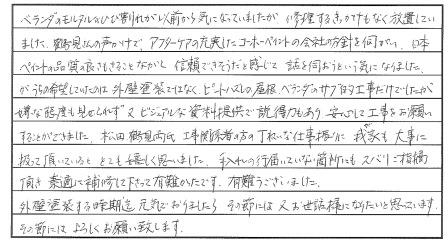 ベランダのモルタルのひび割れが以前から気になっていましたが 修理するきっかけもなく放置してい
ました。鶴見さんの声かけで アフターケアの充実したユーホーペイントの会社の方針を伺がい、日本
ペイントの品質の良さもさることながら 信頼できそうだと感じて 話を伺おうという気になりました。
がうちの希望していたのは 外壁塗装ではなく、ビートハスレの屋根、ベランダのサブ的な工事だけでしたが
嫌な態度も見せられず 又 ビジュアルな資料提供で説得力もあり 安心して工事をお願い
することができました。松田 鶴見両氏 工事関係者の方の丁ねいな仕事振りに 我家も大事に
扱って頂いていると とても嬉しく思いました。手入れの行届いていない箇所にも ズバリご指摘
頂き 素適に補修して下さって有難かったです。有難うございました。
外壁塗装する時期迄 元気でおりましたら その節には 又お世話様になりたいと思っています。
その節には よろしくお願い致します。